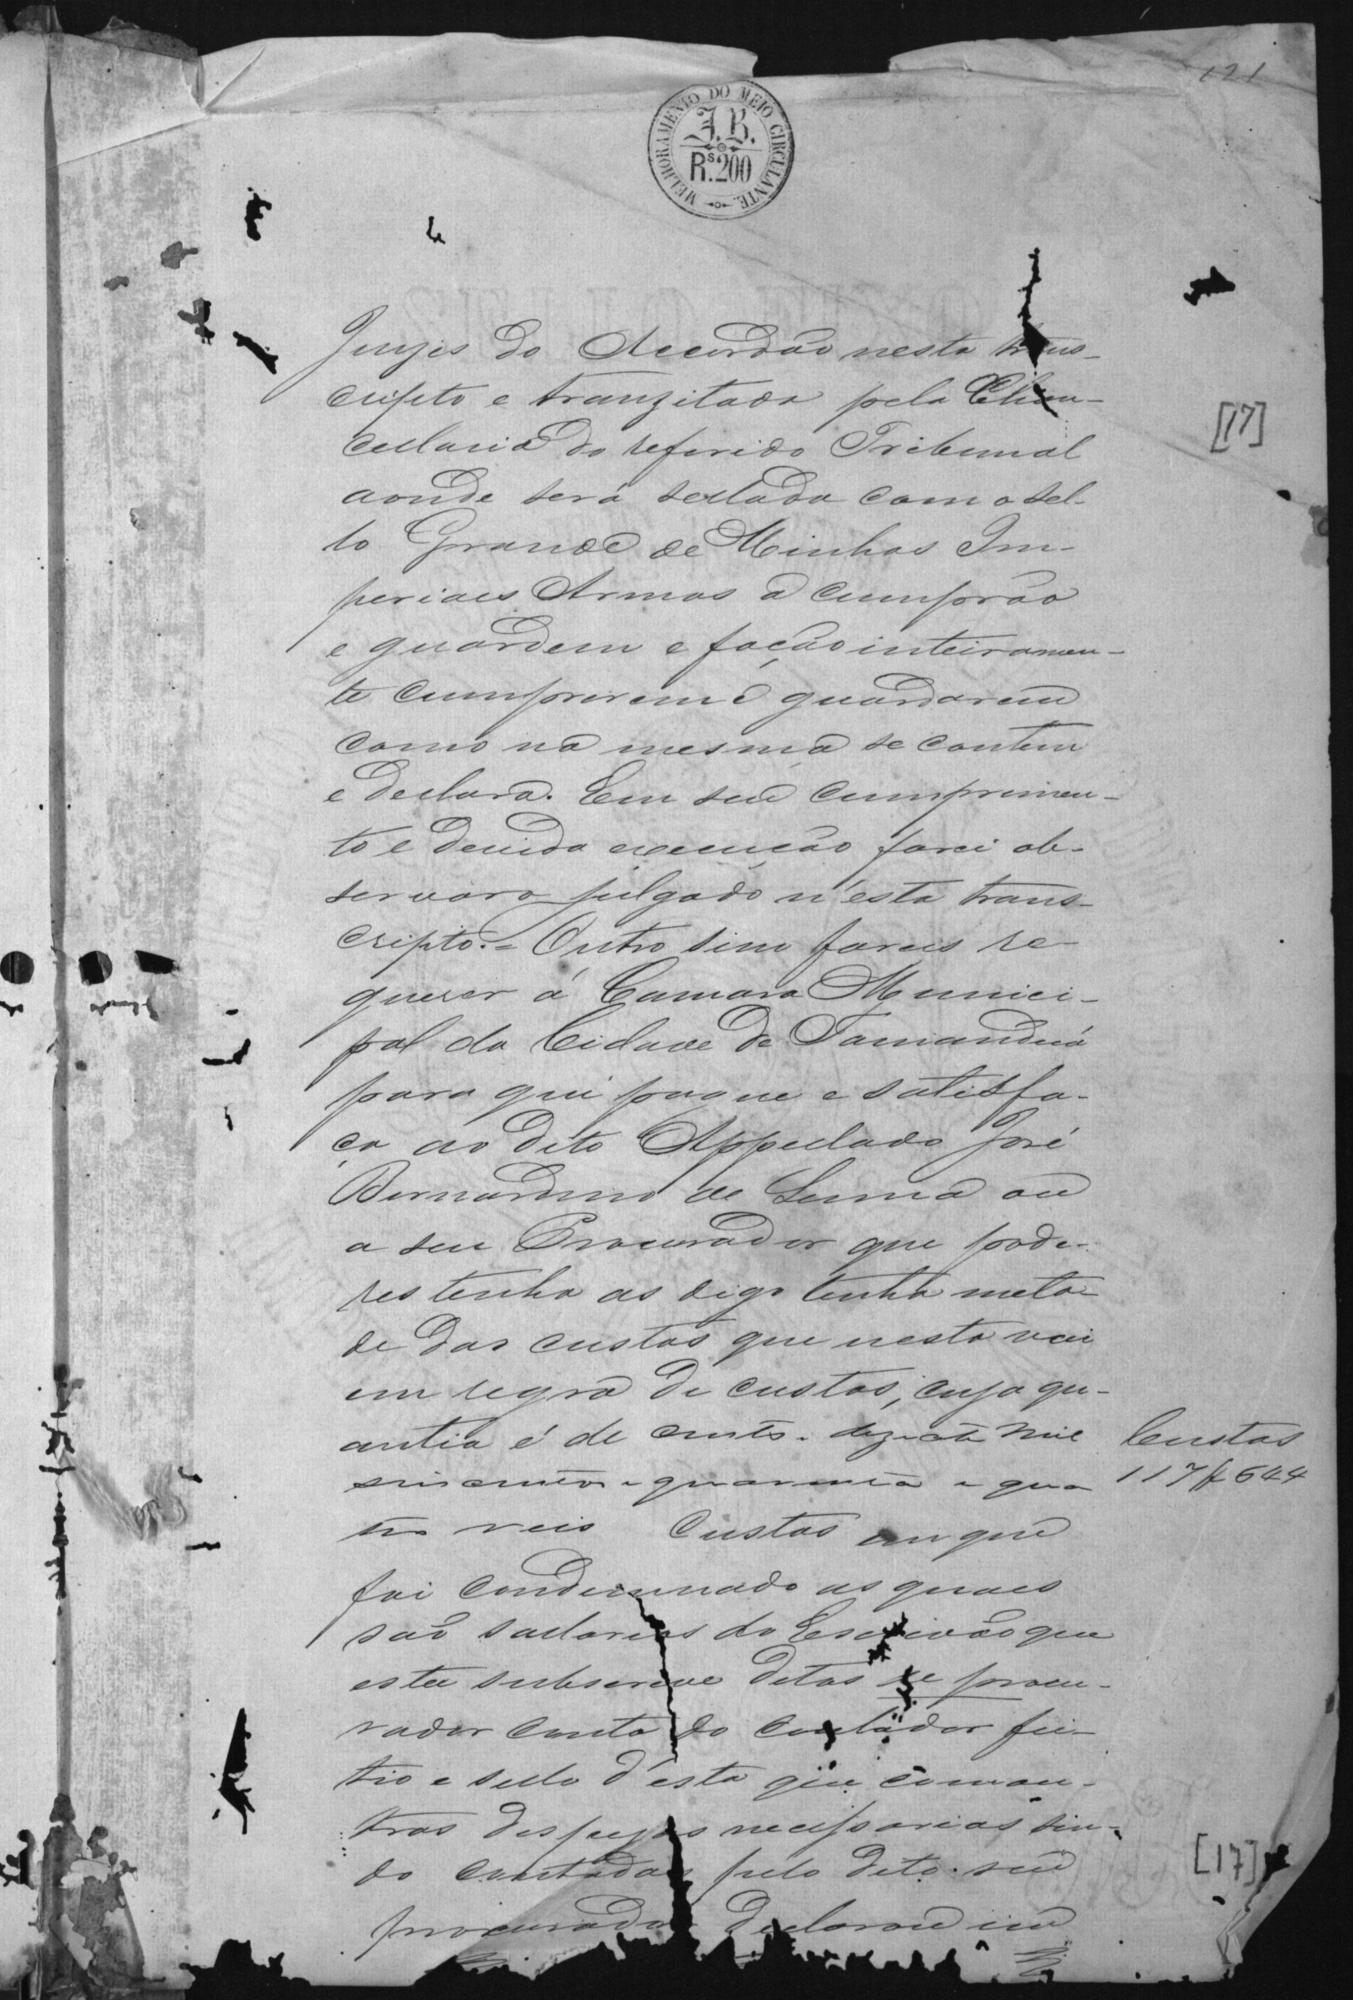 121
MELHORAMENTO DO MEIO CIRCULANTE.
J. B.
Rs. 200
Juizes do Accordão nesta trans-
cripto e tranzitada pela Chan-
cellaria do referido Tribunal
aonde será sellada com o sel-
lo Grande de Minhas Im-
periaes Armas a cumprão
e guardem e fação inteiramen-
te cumprirem e guardarem
como na mesma se contem
e declara. Em seu cumprimen-
to e devida execução farei ob-
servar o julgado n'esta trans-
cripto. = Outro sim fareis re-
querer á Camara Munici-
pal da Cidade de Tamanduá
para que pague e satisfa-
ça ao dito Appellado José
Bernardino de Lima ou
a seu Procurador que pode-
res tenha as digo tenha meta-
de das custas que nesta vai
em regra de custas, cuja qu-
antia é de cento e dezecete mil
seiscentos e quarenta e qua
tro reis Custas em que
Custas
117$644
foi condemnado as quaes
são sallarios do Escrivão que
esta subscreve ditas de procu-
rador conta do contador fei-
tio e sello d'esta que com ou-
tras despezas necessarias sen-
do contadas pelo dito seu
procurador declarou em
[17]
[17]